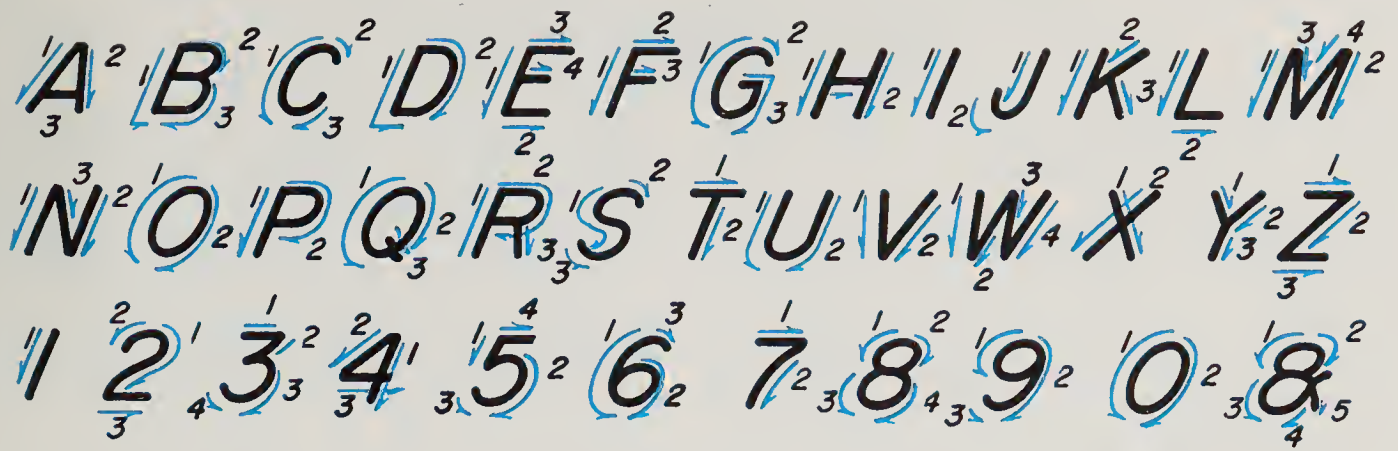 A B C D E F G H I J K L M
N O P Q R S T U V W X Y Z
1 2 3 4 5 6 7 8 9 0 &